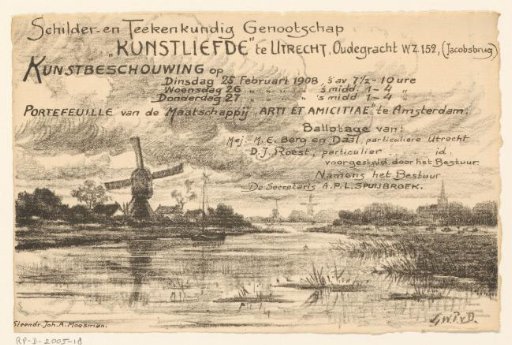 Schilder- en Teekenkundig Genootschap
"KUNSTLIEFDE" te UTRECHT, Oudegracht W.Z. 152, (Jacobsbrug)
KUNSTBESCHOUWING op
Dinsdag 25 Februari 1908, 's av 7½-10 ure
Woensdag 26 " " 's midd 1-4 "
Donderdag 27 " " 's midd 1-4 "
PORTEFEUILLE van de Maatschappij "ARTI ET AMICITIAE" te Amsterdam.
Ballotage van:
Mej. M. E. Berg en Daal, particuliere Utrecht
D. J. Roest, particulier id.
voorgesteld door het Bestuur.
Namens het Bestuur
De Secretaris A. P. L. SPUIJBROEK.
Steendr. Joh. A. Moesman.
G.W.P.v.D.
RP-D-2005-18